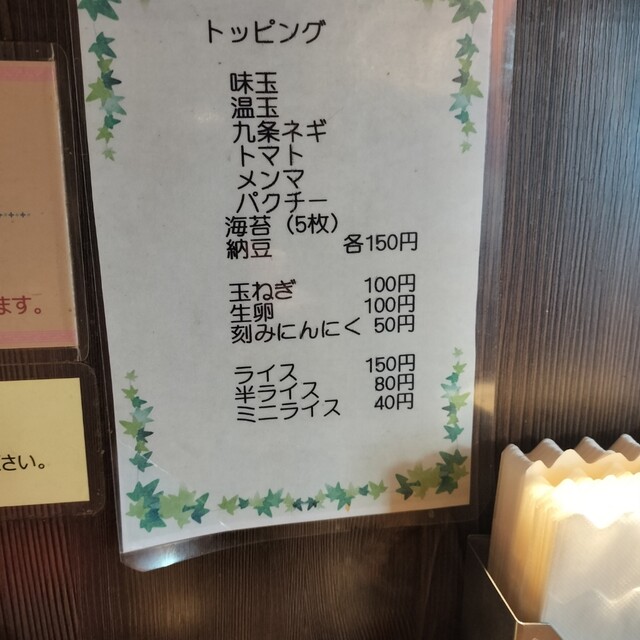 トッピング
味玉
温玉
九条ネギ
トマト
メンマ
パクチー
海苔（5枚）
納豆 各150円
玉ねぎ 100円
生卵 100円
刻みにんにく 50円
ライス 150円
半ライス 80円
ミニライス 40円
ます。
さい。